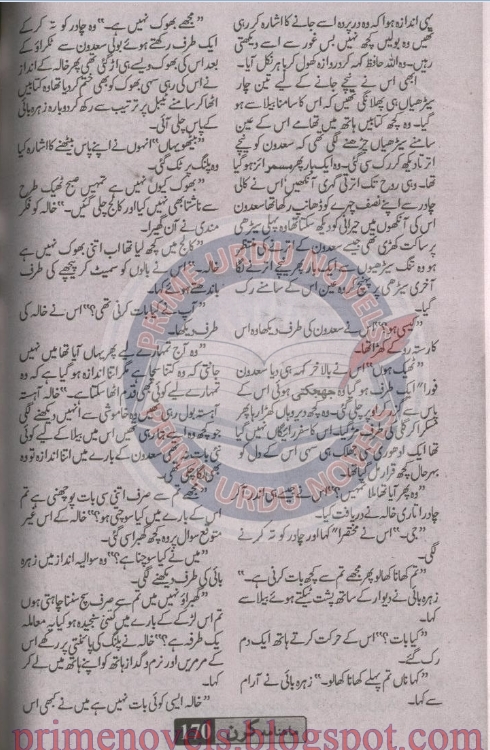 یہی اندازہ ہوا کہ وہ در پردہ اسے جانے کا اشارہ کر رہی
تھیں وہ بولیں کچھ نہیں بس غور سے اسے دیکھتی
رہیں۔ وہ اللہ حافظ کہہ کر دروازہ کھول کر باہر نکل گیا۔
ابھی اس نے نیچے جانے کے لیے تین چار
سیڑھیاں ہی پھلانگی تھیں کہ اس کا سامنا بیلا سے ہو
گیا۔ وہ کچھ کتابیں ہاتھ میں تھامے اس کے عین
سامنے سیڑھیاں چڑھنے لگی تھی کہ سعدون کو نیچے
اترتا دیکھ کر رک سی گئی۔ وہ ایک بار پھر مسمرائز ہو گیا
تھا۔ وہی روح تک اترتی گہری آنکھیں اس نے کالی
چادر سے اپنے نصف چہرے کو ڈھانپ رکھا تھا سعدون
اس کی آنکھوں میں حیرانی کو دیکھ سکتا تھا وہ پہلی سیڑھی
پر ساکت کھڑی تھی جیسے سعدون کے اترنے کی منتظر
ہو وہ تنگ سیڑھیوں سے ایک بار پھر نیچے اترنے لگا
آخری سیڑھی پر وہ عین اس کے سامنے رک
گیا۔
"کیسی ہو؟" اس نے سعدون کی طرف دیکھا وہ اس
کا رستہ روکے کھڑا تھا۔
"ٹھیک ہوں" اس نے بالآخر کہہ ہی دیا سعدون
فورا" ایک طرف ہو گیا وہ جھجھکتی ہوئی اس کے
پاس سے اوپر چلی گئی۔ وہ کچھ دیر وہاں کھڑا رہا پھر
مسکرا کر گلی کی طرف بڑھ گیا۔ اس کا سفر رائیگاں نہیں گیا
تھا ایک ادھوری سی جھلک ہی سہی اس کے دل کو
بہرحال کچھ قرار مل گیا تھا۔
"وہ پھر آیا تھا ملا تمہیں؟" اس نے جیسے ہی اندر آ
چادر اتاری خالہ نے دریافت کیا۔
"جی۔" اس نے مختصرا" کہا اور چادر کو تہہ کرنے
لگی۔
"تم کھانا کھا لو پھر مجھے تم سے کچھ بات کرنی ہے۔"
زہرہ بائی نے دیوار کے ساتھ پشت ٹیکتے ہوئے بیلا سے
کہا۔
"کیا بات؟" اس کے حرکت کرتے ہاتھ ایک دم
رک گئے۔
"کہا ناں تم پہلے کھانا کھا لو۔" زہرہ بائی نے آرام
سے کہا۔
"مجھے بھوک نہیں ہے۔" وہ چادر کو تہہ کر کے
ایک طرف رکھتے ہوئے بولی سعدون سے ٹکراؤ کے
بعد اس کی بھوک ویسے ہی اڑ گئی تھی پھر خالہ کے انداز
نے اس کی رہی سہی بھوک کو بھی ختم کر دیا تھا وہ کتابیں
اٹھا کر سامنے ٹیبل پر ترتیب سے رکھ کر دوبارہ زہرہ بائی
کے پاس چلی آئی۔
"بیٹھو یہاں" انہوں نے اپنے پاس بیٹھنے کا اشارہ کیا
وہ پلنگ پر ٹک گئی۔
"بھوک کیوں نہیں ہے تمہیں صبح ٹھیک طرح
سے ناشتا بھی نہیں کیا اور کالج چلی گئیں۔" خالہ کو فکر
مندی نے آن گھیرا۔
"کالج میں کچھ کھا لیا تھا اب اتنی بھوک نہیں ہے
خالہ۔" اس نے بالوں کو سمیٹ کر پیچھے کی طرف
باندھتے ہوئے کہا۔
"آپ نے کیا بات کرنی تھی؟" اس نے خالہ کی
طرف دیکھا۔
"وہ آج تمہارے لیے پھر یہاں آیا تھا میں نہیں
جانتی کہ وہ کتنا سچا ہے مگر اتنا اندازہ ہو گیا ہے کہ وہ
تمہارے لیے کوئی بھی قدم اٹھا سکتا ہے۔" خالہ آہستہ
آہستہ بول رہی تھیں وہ خاموشی سے انہیں دیکھنے لگی
جو کچھ وہ اسے بتا رہی تھیں اس میں بیلا کے لیے کوئی
نئی بات نہیں تھی سعدون کے بارے میں اتنا اندازہ تو وہ
بھی لگا چکی تھی۔
"مجھے تم سے صرف اتنی سی بات پوچھنی ہے تم
اس کے بارے میں کیا سوچتی ہو؟" خالہ کے اس غیر
متوقع سوال پر وہ کچھ گھبرا سی گئی۔
"میں نے کیا سوچنا ہے؟" وہ سوالیہ انداز میں زہرہ
بائی کی طرف دیکھنے لگی۔
"گھبراؤ نہیں میں تم سے صرف سچ سننا چاہتی ہوں
تم اس لڑکے کے بارے میں کتنی سنجیدہ ہو کیا یہ معاملہ
یک طرفہ ہے؟" خالہ نے پلنگ کی پائنتی پر رکھے اس
کے مرمریں اور نرم و گداز ہاتھ کو اپنے ہاتھ میں لے کر
کہا۔
"خالہ ایسی کوئی بات نہیں ہے میں نے کبھی اس
ماہنامہ کرن 170
PRIME URDU NOVELS
PRIME URDU NOVELS
primenovels.blogspot.com